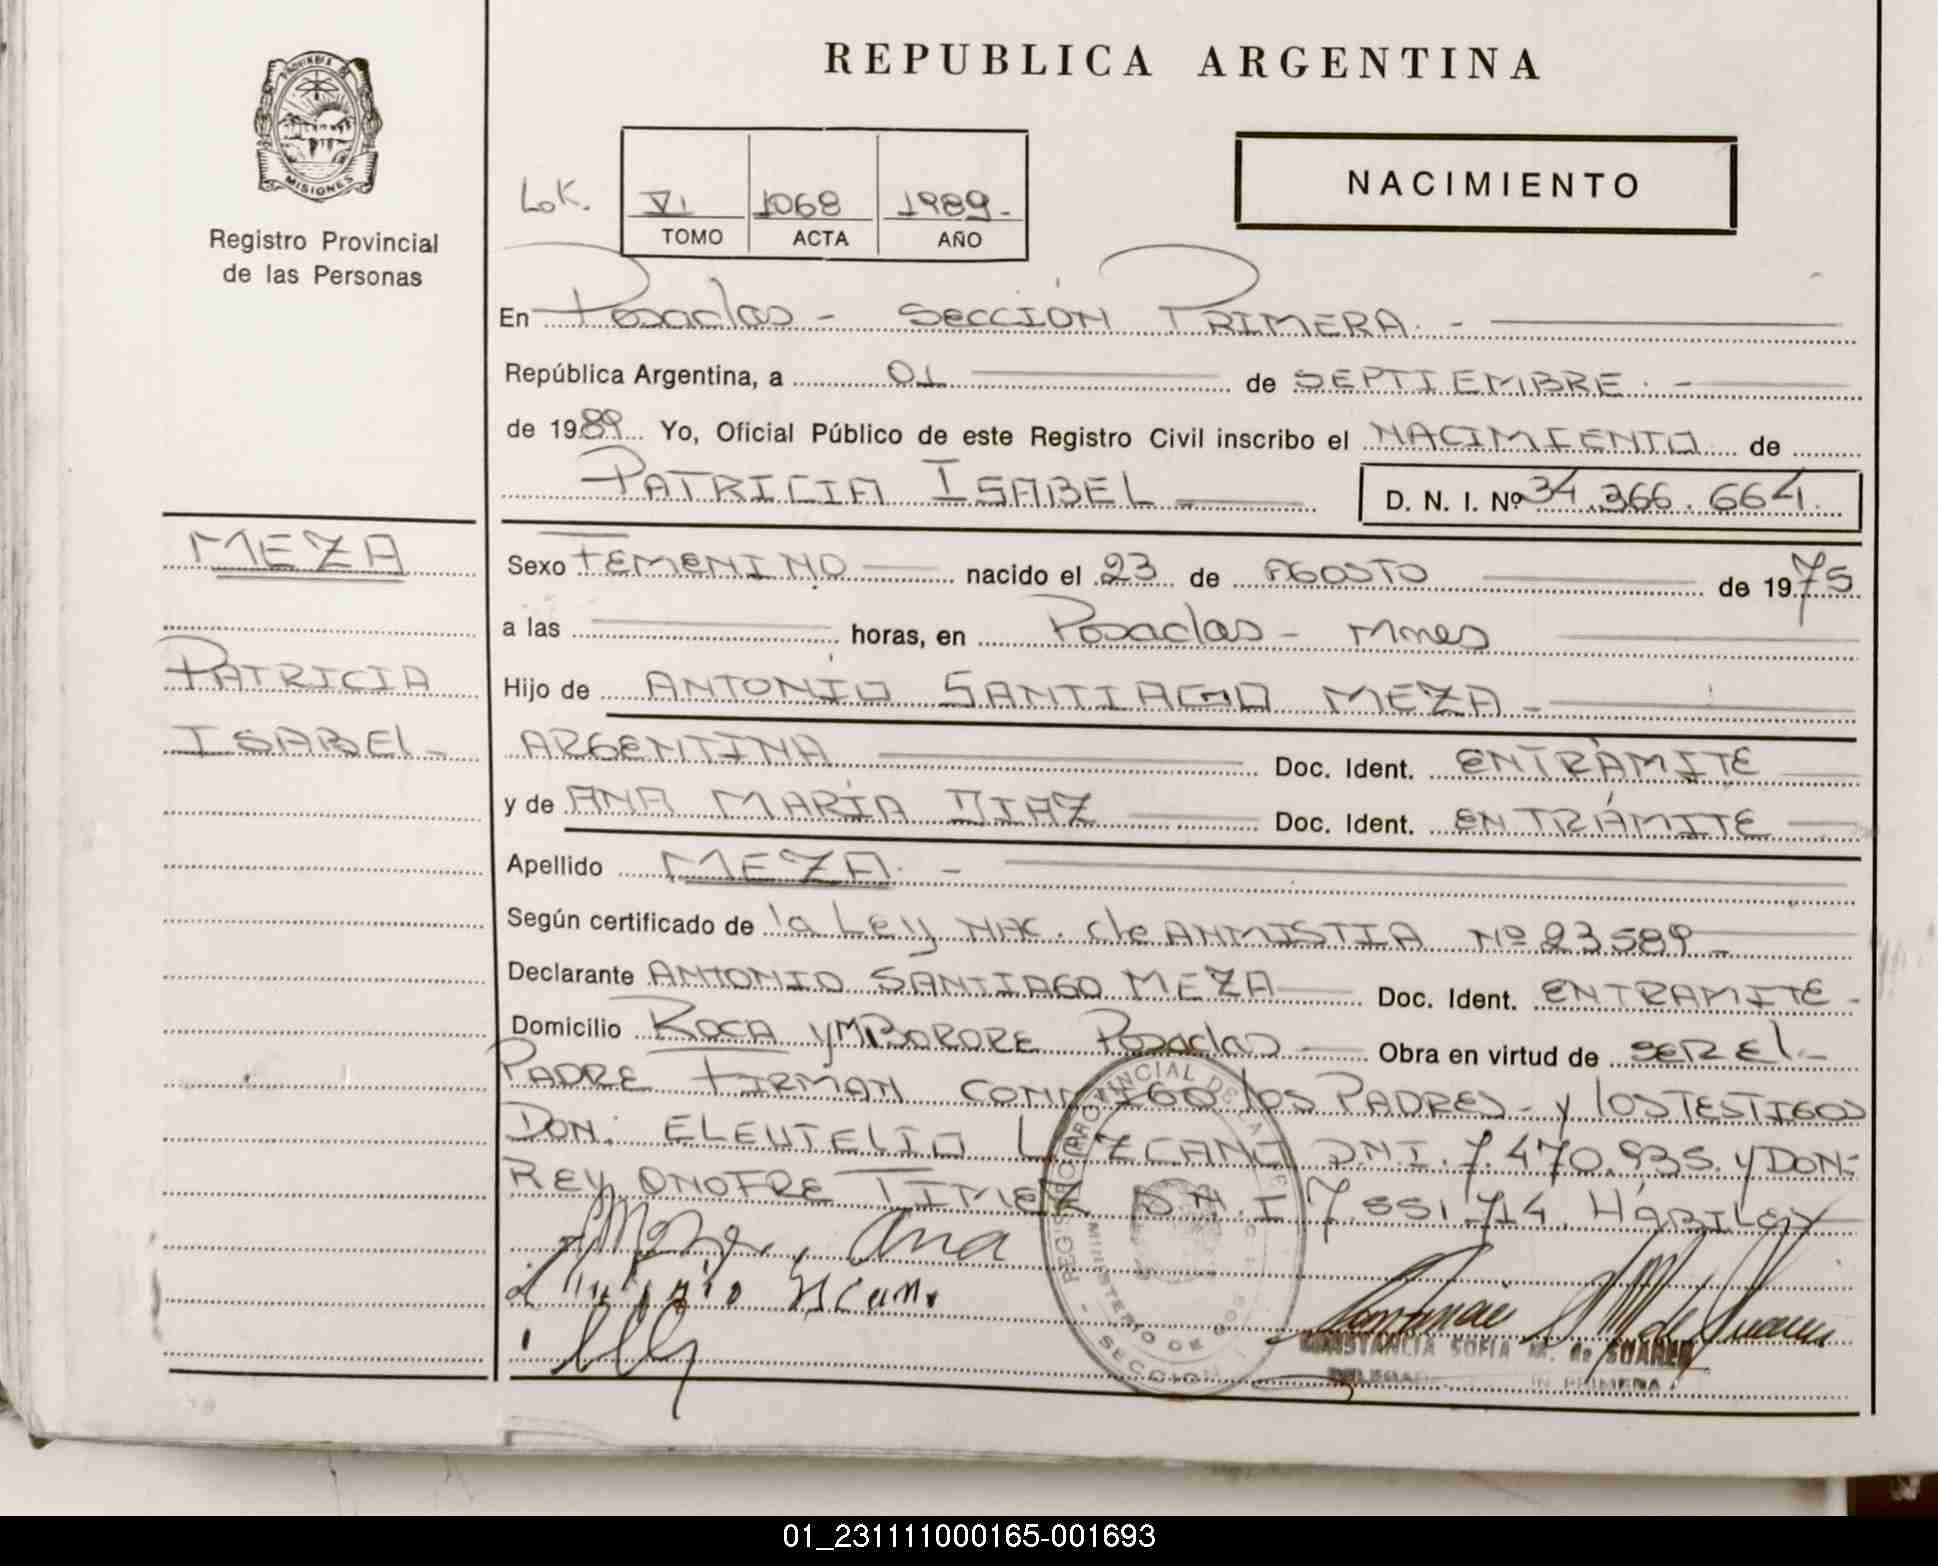 REPUBLICA ARGENTINA
PROVINCIA DE
MISIONES
Registro Provincial
de las Personas
NACIMIENTO
LoK.
VI 1068 1989.-
TOMO ACTA AÑO
En Posadas - Sección Primera. -
República Argentina, a 01 de SEPTIEMBRE. -
de 1989 Yo, Oficial Público de este Registro Civil inscribo el NACIMIENTO de
PATRICIA ISABEL D. N. I. Nº 34.366.664.
MEZA
PATRICIA
ISABEL-
Sexo FEMENINO nacido el 23 de AGOSTO de 1975
a las horas, en Posadas - Mnes
Hijo de ANTONIO SANTIAGO MEZA -
ARGENTINA Doc. Ident. ENTRÁMITE
y de ANA MARÍA DIAZ Doc. Ident. ENTRÁMITE
Apellido MEZA. -
Según certificado de la Ley NAC. de ANMISTIA Nº 23.589-
Declarante ANTONIO SANTIAGO MEZA Doc. Ident. ENTRAMITE-
Domicilio ROCA y MBORORE Posadas Obra en virtud de SER EL-
PADRE FIRMAN CONMIGO los PADRES- y los TESTIGOS
DON: ELEUTELIO LEZCANO D.N.I. 7.470.935. y DON:
REY ONOFRE TIMEZ D.N.I 7.551.714. HÁBILES
Ana
REGISTRO PROVINCIAL DE LAS
MINISTERIO DE GOB
SECCION 1
CONSTANCIA SOFIA M. de SUAREZ
PRIMERA
01_231111000165-001693